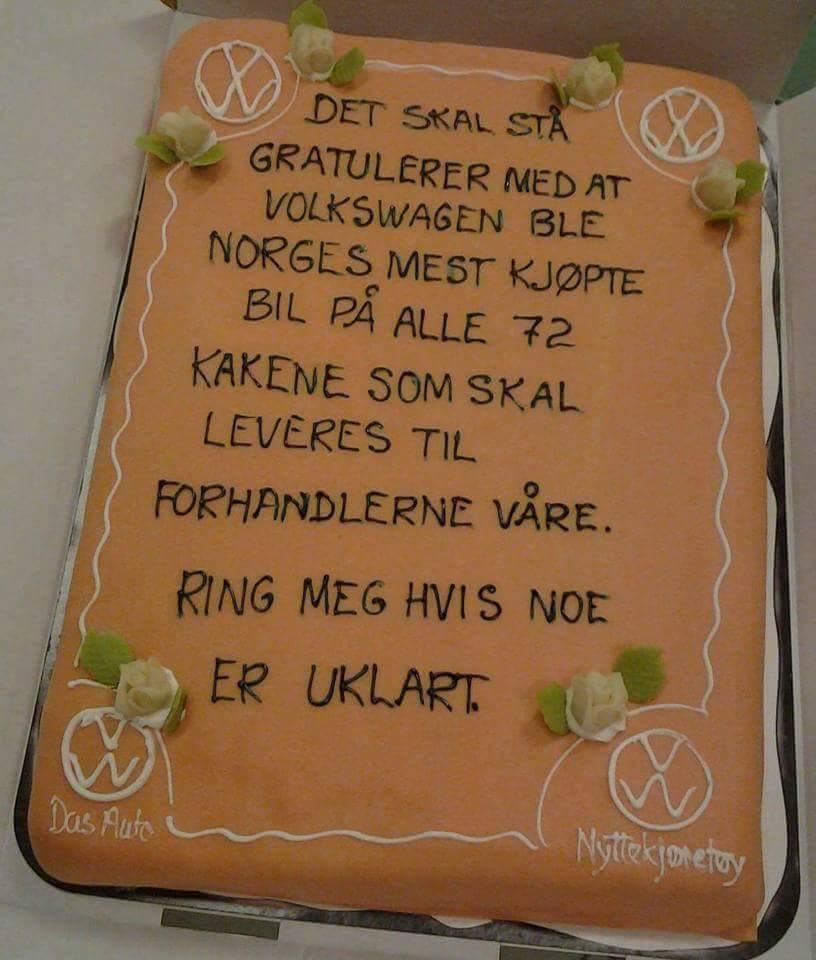 DET SKAL STÅ
GRATULERER MED AT
VOLKSWAGEN BLE
NORGES MEST KJØPTE
BIL PÅ ALLE 72
KAKENE SOM SKAL
LEVERES TIL
FORHANDLERNE VÅRE.
RING MEG HVIS NOE
ER UKLART.
Das Auto
Nyttekjøretøy